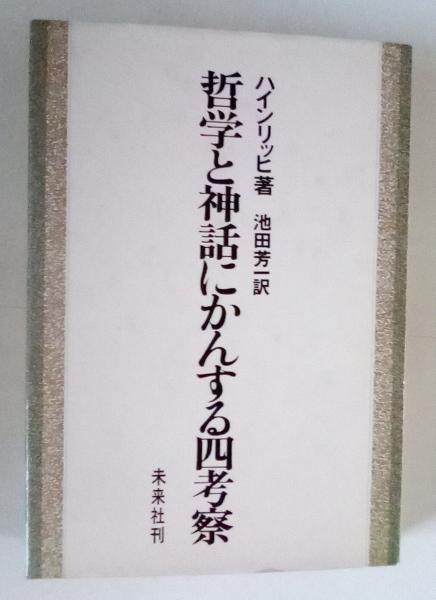 ハインリッヒ著 池田芳一訳
哲学と神話にかんする四考察
未来社刊